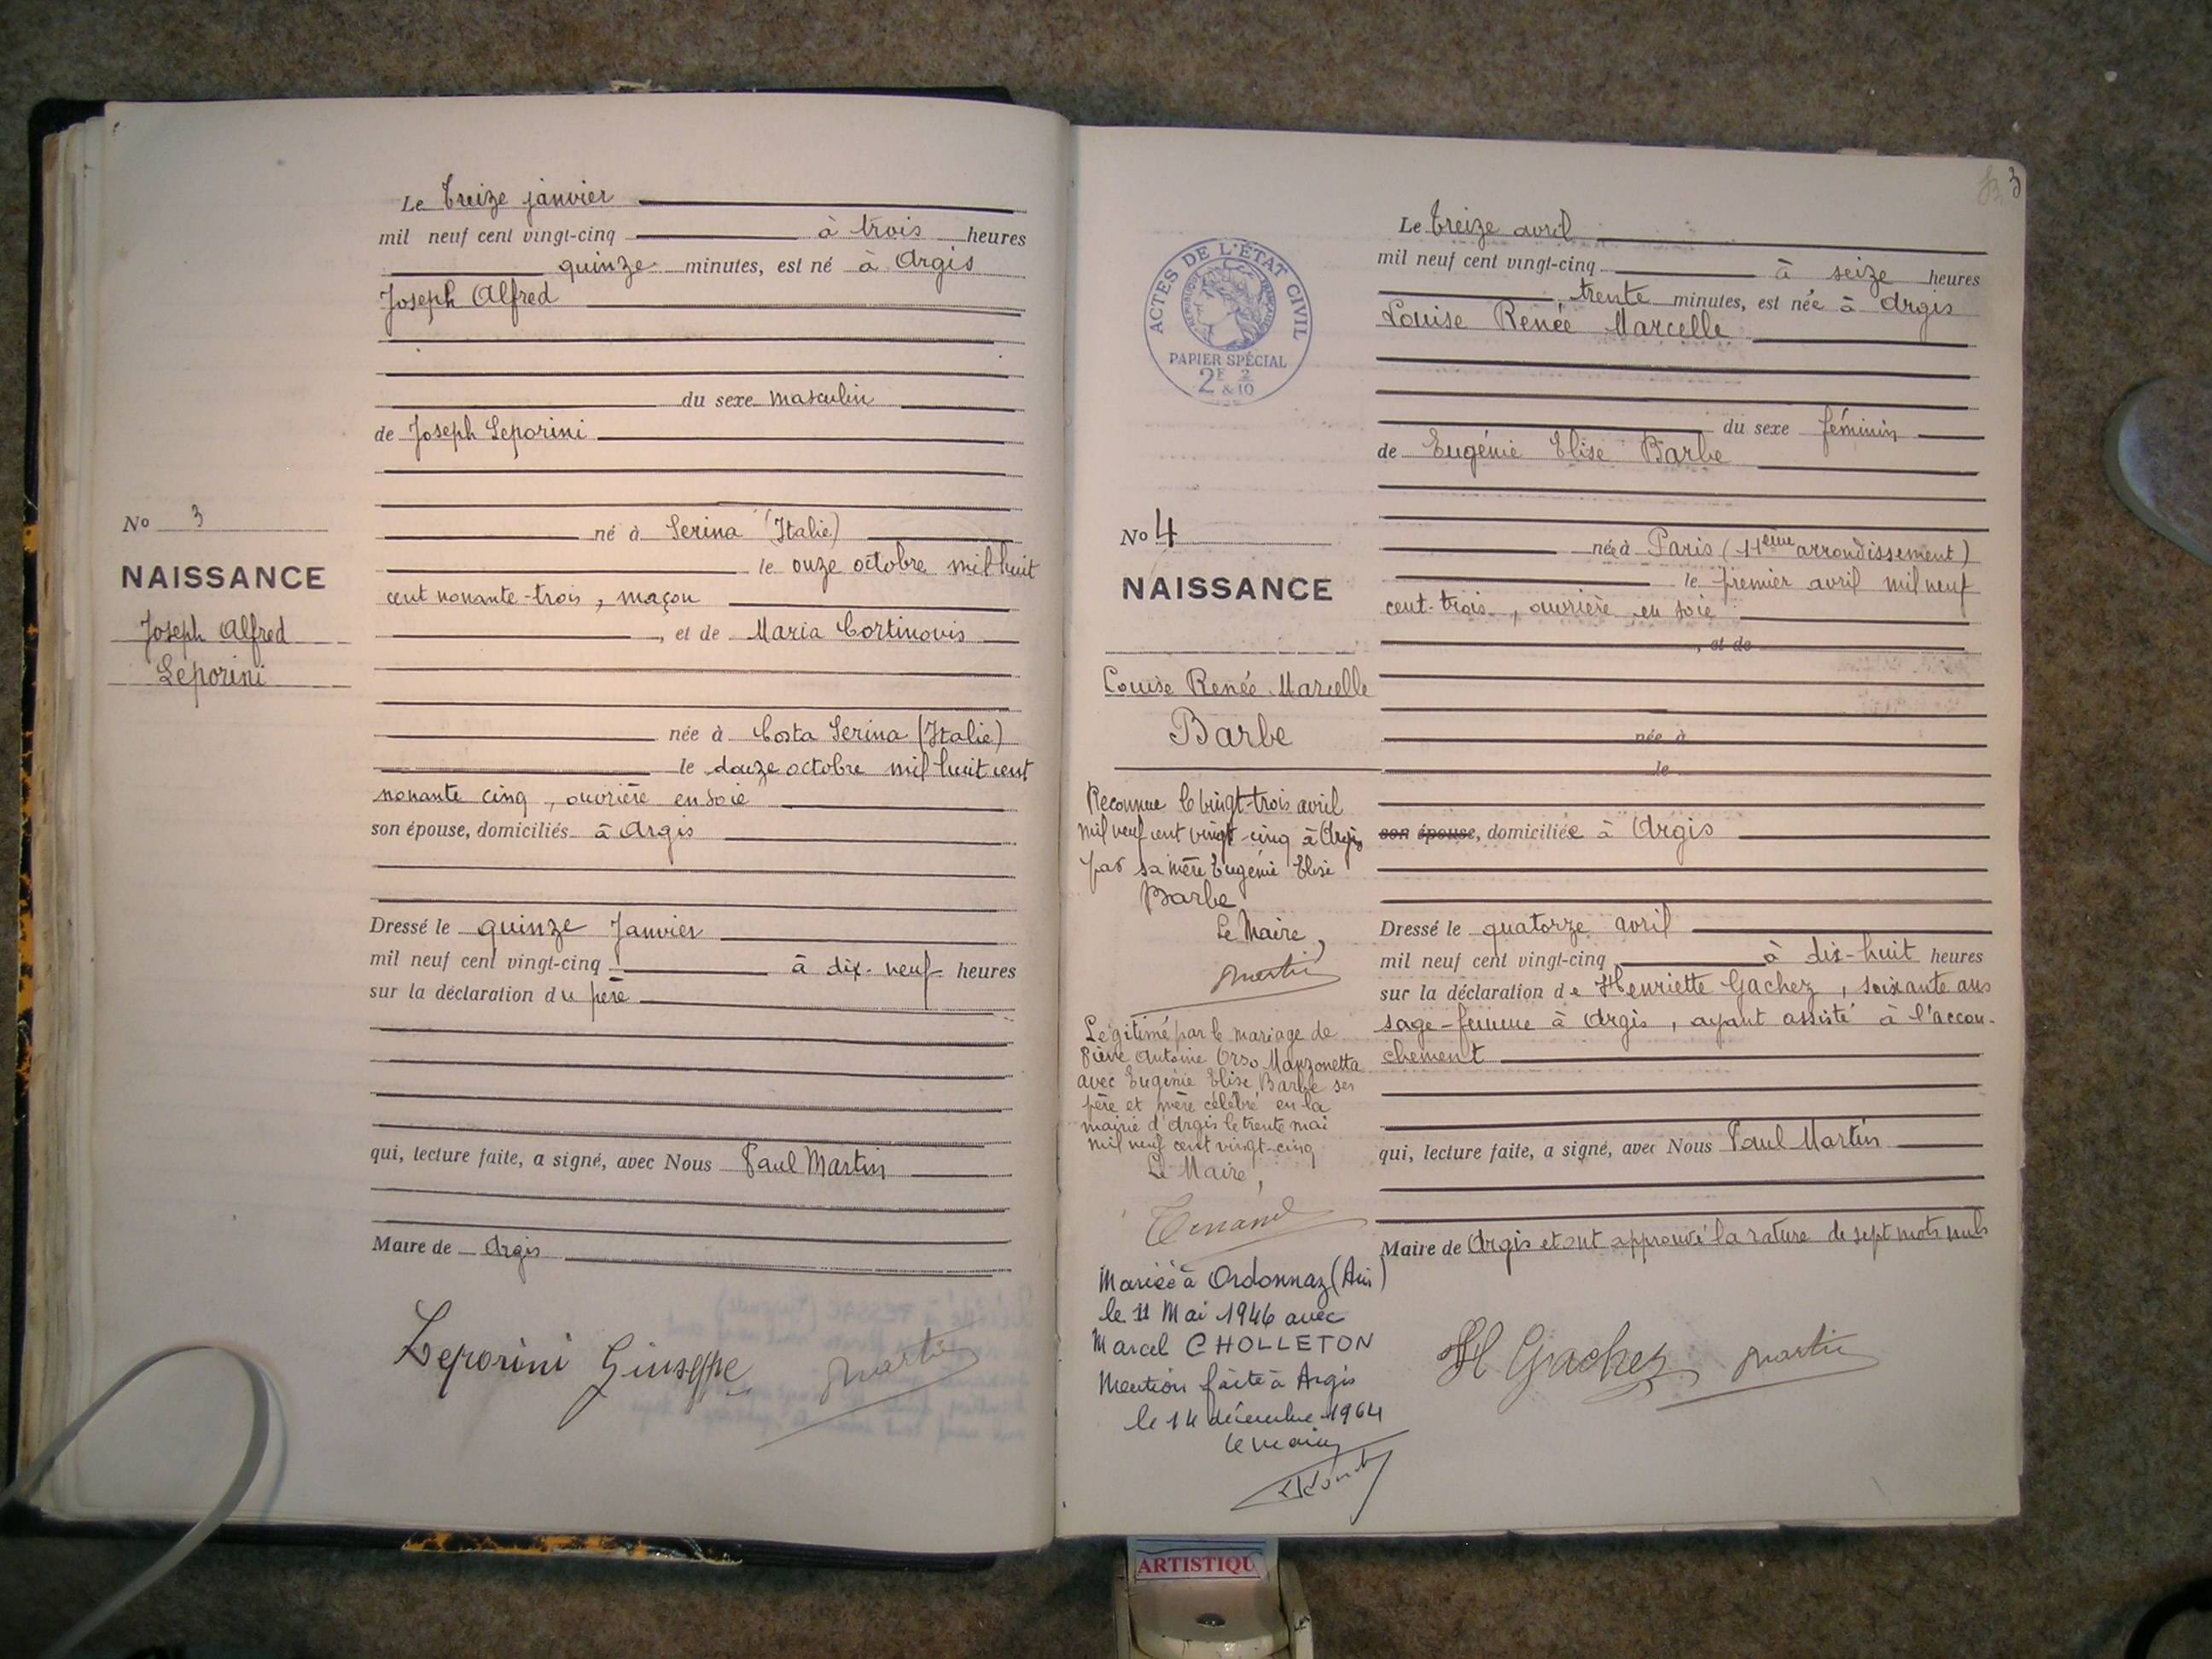 Le treize janvier
mil neuf cent vingt-cinq à trois heures
quinze minutes, est né à Argis
Joseph Alfred
du sexe masculin
de Joseph Leporini
né à Serina (Italie)
le onze octobre mil huit
cent nonante-trois, maçon
, et de Maria Cortinovis
née à Costa Serina (Italie)
le douze octobre mil huit cent
nonante cinq, ouvrière en soie
son épouse, domiciliés à Argis
Dressé le quinze Janvier
mil neuf cent vingt-cinq à dix-neuf heures
sur la déclaration du père
qui, lecture faite, a signé, avec Nous Paul Martin
Maire de Argis
Leporini Giuseppe Martin
No 3
NAISSANCE
Joseph Alfred
Leporini
3
ACTES DE L'ÉTAT CIVIL
RÉPUBLIQUE FRANÇAISE
PAPIER SPÉCIAL
2F & 2/10
No 4
NAISSANCE
Louise Renée Marcelle
Barbe
Reconnue le vingt-trois avril
mil neuf cent vingt-cinq à Argis
par sa mère Eugénie Elise
Barbe
Le Maire,
Martin
Légitimé par le mariage de
Antoine Orso Manzonetta
avec Eugénie Elise Barbe ses
père et mère célébré en la
mairie d'Argis le trente mai
mil neuf cent vingt-cinq
Le Maire,
Mariée à Ordonnaz (Ain)
le 11 Mai 1946 avec
Marcel CHOLLETON
Mention faite à Argis
le 14 décembre 1964
le maire
Le treize avril
mil neuf cent vingt-cinq à seize heures
trente minutes, est née à Argis
Louise Renée Marcelle
du sexe féminin
de Eugénie Elise Barbe
née à Paris (11ème arrondissement)
le premier avril mil neuf
cent-trois, ouvrière en soie
, et de
née à
le
son épouse, domiciliée à Argis
Dressé le quatorze avril
mil neuf cent vingt-cinq à dix-huit heures
sur la déclaration de Henriette Gachez, soixante ans
sage-femme à Argis, ayant assisté à l'accou-
chement
qui, lecture faite, a signé, avec Nous Paul Martin
Maire de Argis et ont approuvé la rature de sept mots nuls
H Gachez Martin
ARTISTIQU